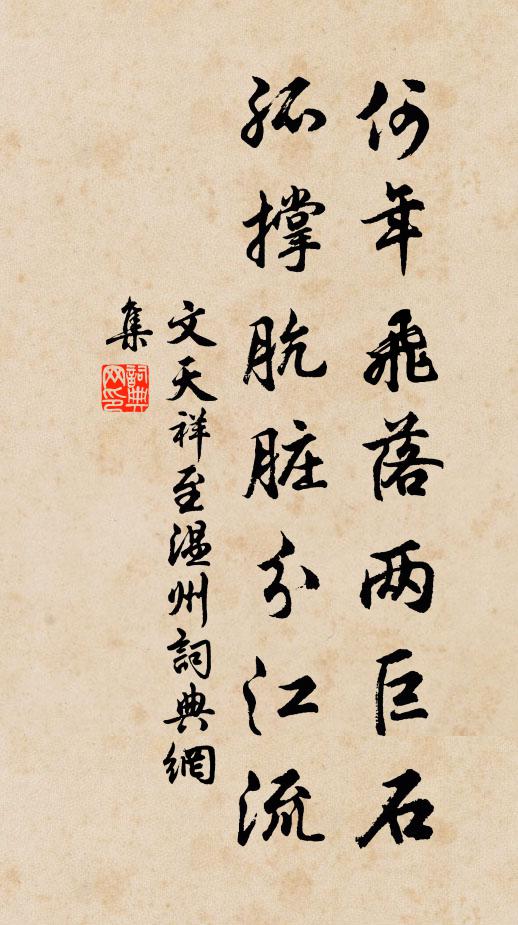 何年飛落两巨石
孤撐肮脏分江流
文天祥至温州詞典網
集
詞典網印